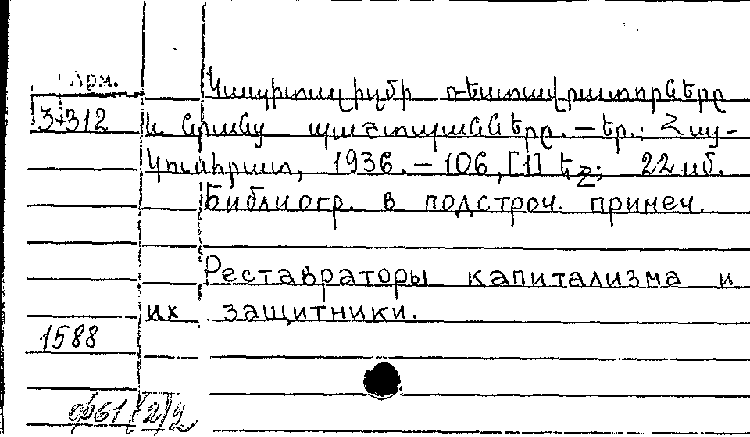 Арм.
Կապիտալիզմի ռեստավրատորները
3-312
և նրանց պաշտպանները. – Եր.: Հայ-
կուսհրատ, 1936. – 106, [1] էջ; 22 սմ.
Библиогр. в подстроч. примеч.
Реставраторы капитализма и
их защитники.
1588